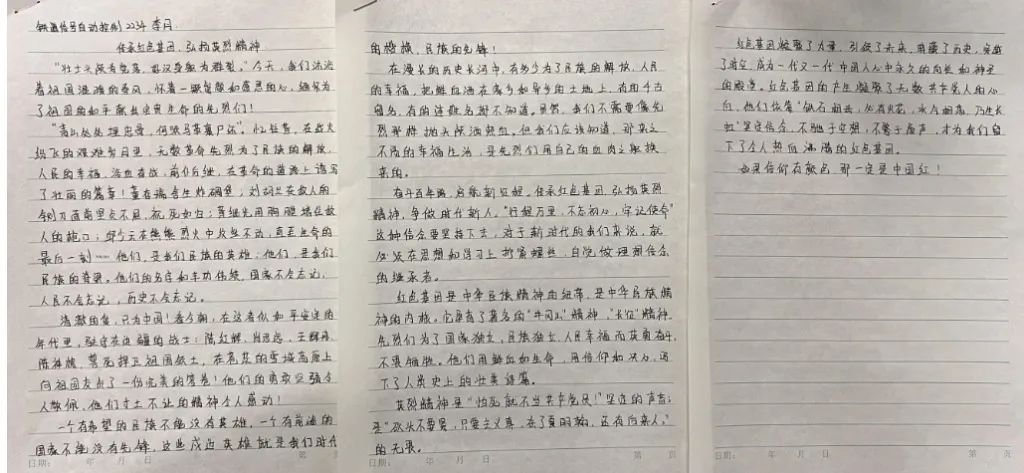 铁道信号自动控制2234 李月
传承红色基因,弘扬英烈精神
"壮士头颅为党落,好汉身躯为群裂。"今天,我们沐浴
着祖国温暖的春风,怀着一颗
了祖国的和平献出宝贵生命的先烈们!
"青山处处埋忠骨,何须马革裹尸还"。忆往昔,在战火
纷飞的艰难岁月里,无数革命先烈为了民族的解放,
人民的幸福,浴血奋战,前仆后继,在革命的道路上谱写
了壮丽的篇章!董存瑞舍生炸碉堡;刘胡兰在敌人的
铡刀面前坚贞不屈,视死如归;黄继光用胸膛堵住敌
人的枪口;邱少云在熊熊烈火中纹丝不动,直至生命的
最后一刻……他们,是我们民族的英雄;他们,是我们
民族的脊梁。他们的名字和丰功伟绩,国家不会忘记,
人民不会忘记,历史不会忘记。
清澈的爱,只为中国!看今朝,在这看似和平安定的
年代里,驻守在边疆的战士:陈红军、肖思远、王焯冉、
陈祥榕,誓死捍卫祖国领土,在苍茫的雪域高原上
向祖国交上了一份完美的答卷!他们的勇敢坚强令
人敬佩,他们寸土不让的精神令人感动!
一个有希望的民族不能没有英雄,一个有前途的
国家不能没有先锋,这些戍边英雄就是我们时代
日期: 年 月 日 第 页
的楷模,民族的先锋!
在漫长的历史长河中,有多少为了民族的解放,人民
的幸福,把鲜血洒在
留名,有的连姓名都不知道。虽然,我们不需要像先
烈那样抛头颅洒热血。但我们应该知道,那来之
不易的幸福生活,是先烈们用自己的血肉之躯换
来的。
奋斗百年路,启航新征程。传承红色基因,弘扬英烈
精神,争做时代新人。"行程万里,不忘初心,牢记使命"
这种信念要坚持下去,对于新时代的我们来说,就
必须在思想和学习上拧紧螺丝,自觉做理想信念
的继承者。
红色基因是中华民族精神的纽带,是中华民族精
神的内核。它孕育了著名的"井冈山"精神,"长征"精神。
先烈们为了国家独立,民族独立,人民幸福而英勇奋斗,
不畏牺牲。他们用鲜血和生命,用信仰和
下了人类史上的壮美诗篇。
英烈精神是"怕死就不当共产党员!"坚定的声音;
是"砍头不要紧,只要主义真,杀了夏明翰,还有后来人。"
的无畏。
日期: 年 月 日 第 页
红色基因凝聚了力量,引领了未来,
了时空,成为一代又一代中国人心中永久的向往和神圣
的殿堂。红色基因的产生凝聚了无数共产党人的心
血,他们依靠"钻石相击,必有火花,水气相荡,乃生长
虹"坚定信念,不驰于空想,不骛于虚声,才为我们留
下了令人热血沸腾的红色基因。
如果信仰有颜色,那一定是中国红!
日期: 年 月 日 第 页